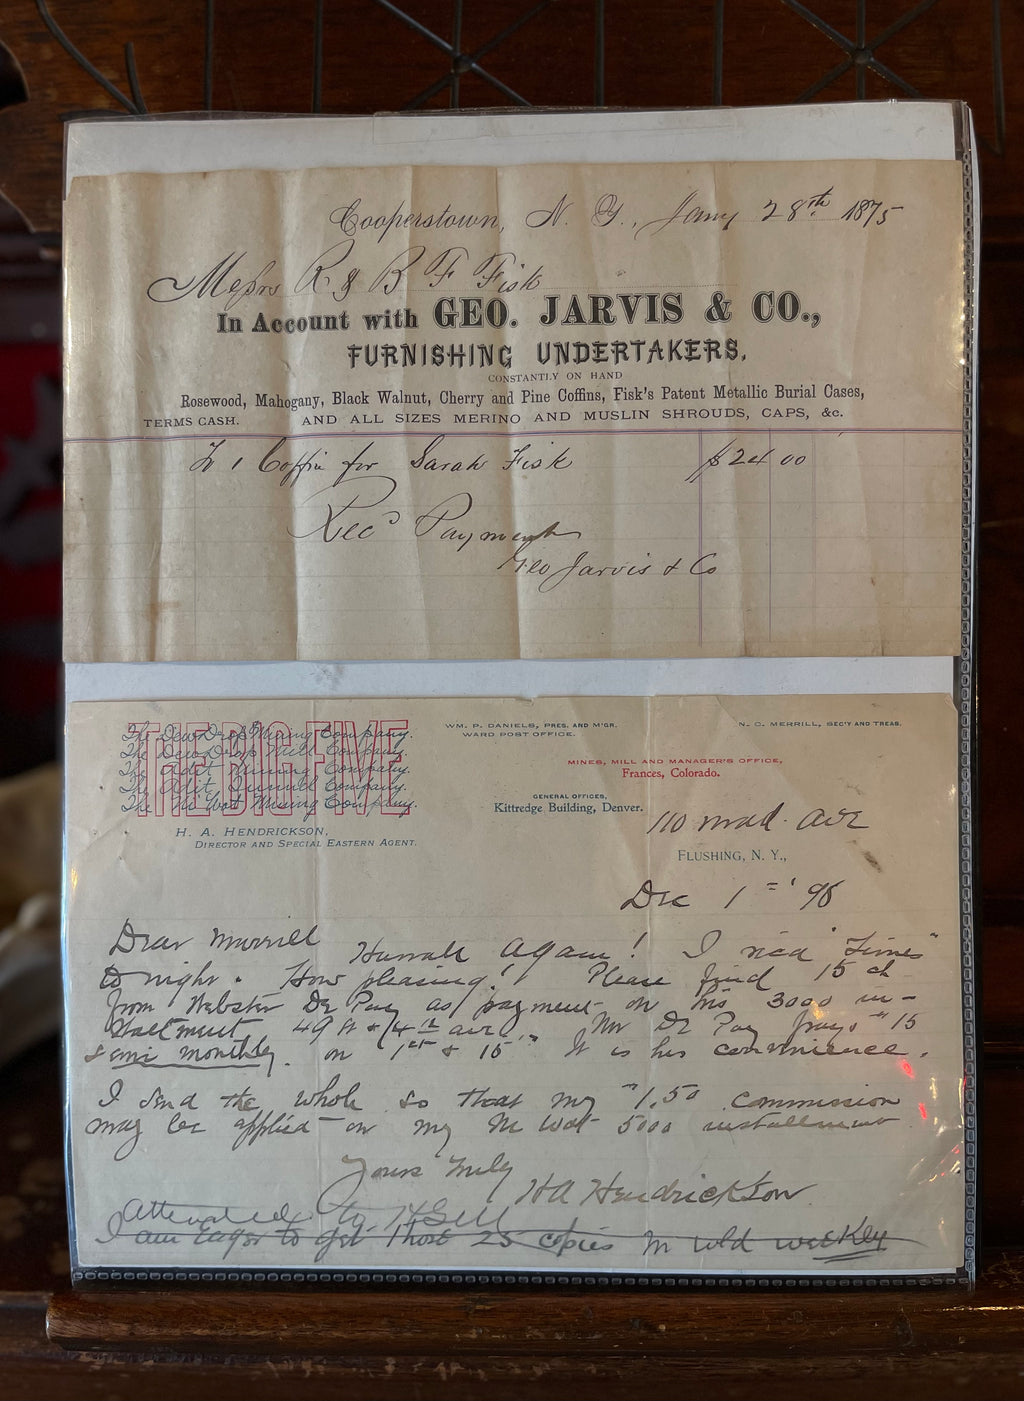 Cooperstown, N. Y., Jany 28th 1875
Messrs R & B F Fisk
In Account with GEO. JARVIS & CO.,
FURNISHING UNDERTAKERS,
CONSTANTLY ON HAND
Rosewood, Mahogany, Black Walnut, Cherry and Pine Coffins, Fisk's Patent Metallic Burial Cases,
TERMS CASH. AND ALL SIZES MERINO AND MUSLIN SHROUDS, CAPS, &c.
To 1 Coffin for Sarah Fisk $24 00
Recd Payment
Geo Jarvis & Co
THE BIG FIVE
The Dew Drop Mining Company.
The Dew Drop Mill Company.
The Adit Mining Company.
The Adit Tunnel Company.
The Ni Wot Mining Company.
H. A. HENDRICKSON,
DIRECTOR AND SPECIAL EASTERN AGENT.
WM. P. DANIELS, PRES. AND M'GR.
WARD POST OFFICE.
N. C. MERRILL, SEC'Y AND TREAS.
MINES, MILL AND MANAGER'S OFFICE,
Frances, Colorado.
GENERAL OFFICES,
Kittredge Building, Denver.
110 Mad. Ave
FLUSHING, N. Y.,
Dec 1st '98
Dear Merrill
Hurrah again! I read "Times"
to night. How pleasing! Please find 15 ch
from Webster De Pay as payment on his 3000 in-
stallment, 49 & 4th ave. Mr De Pay pays "15
semi monthly. on 1st & 15" It is his convenience.
I send the whole so that my "1.50 commission
may be applied on my Ni Wot 5000 installment
Yours truly
H A Hendrickson
Attended to
I am eager to get those 25 copies weekly